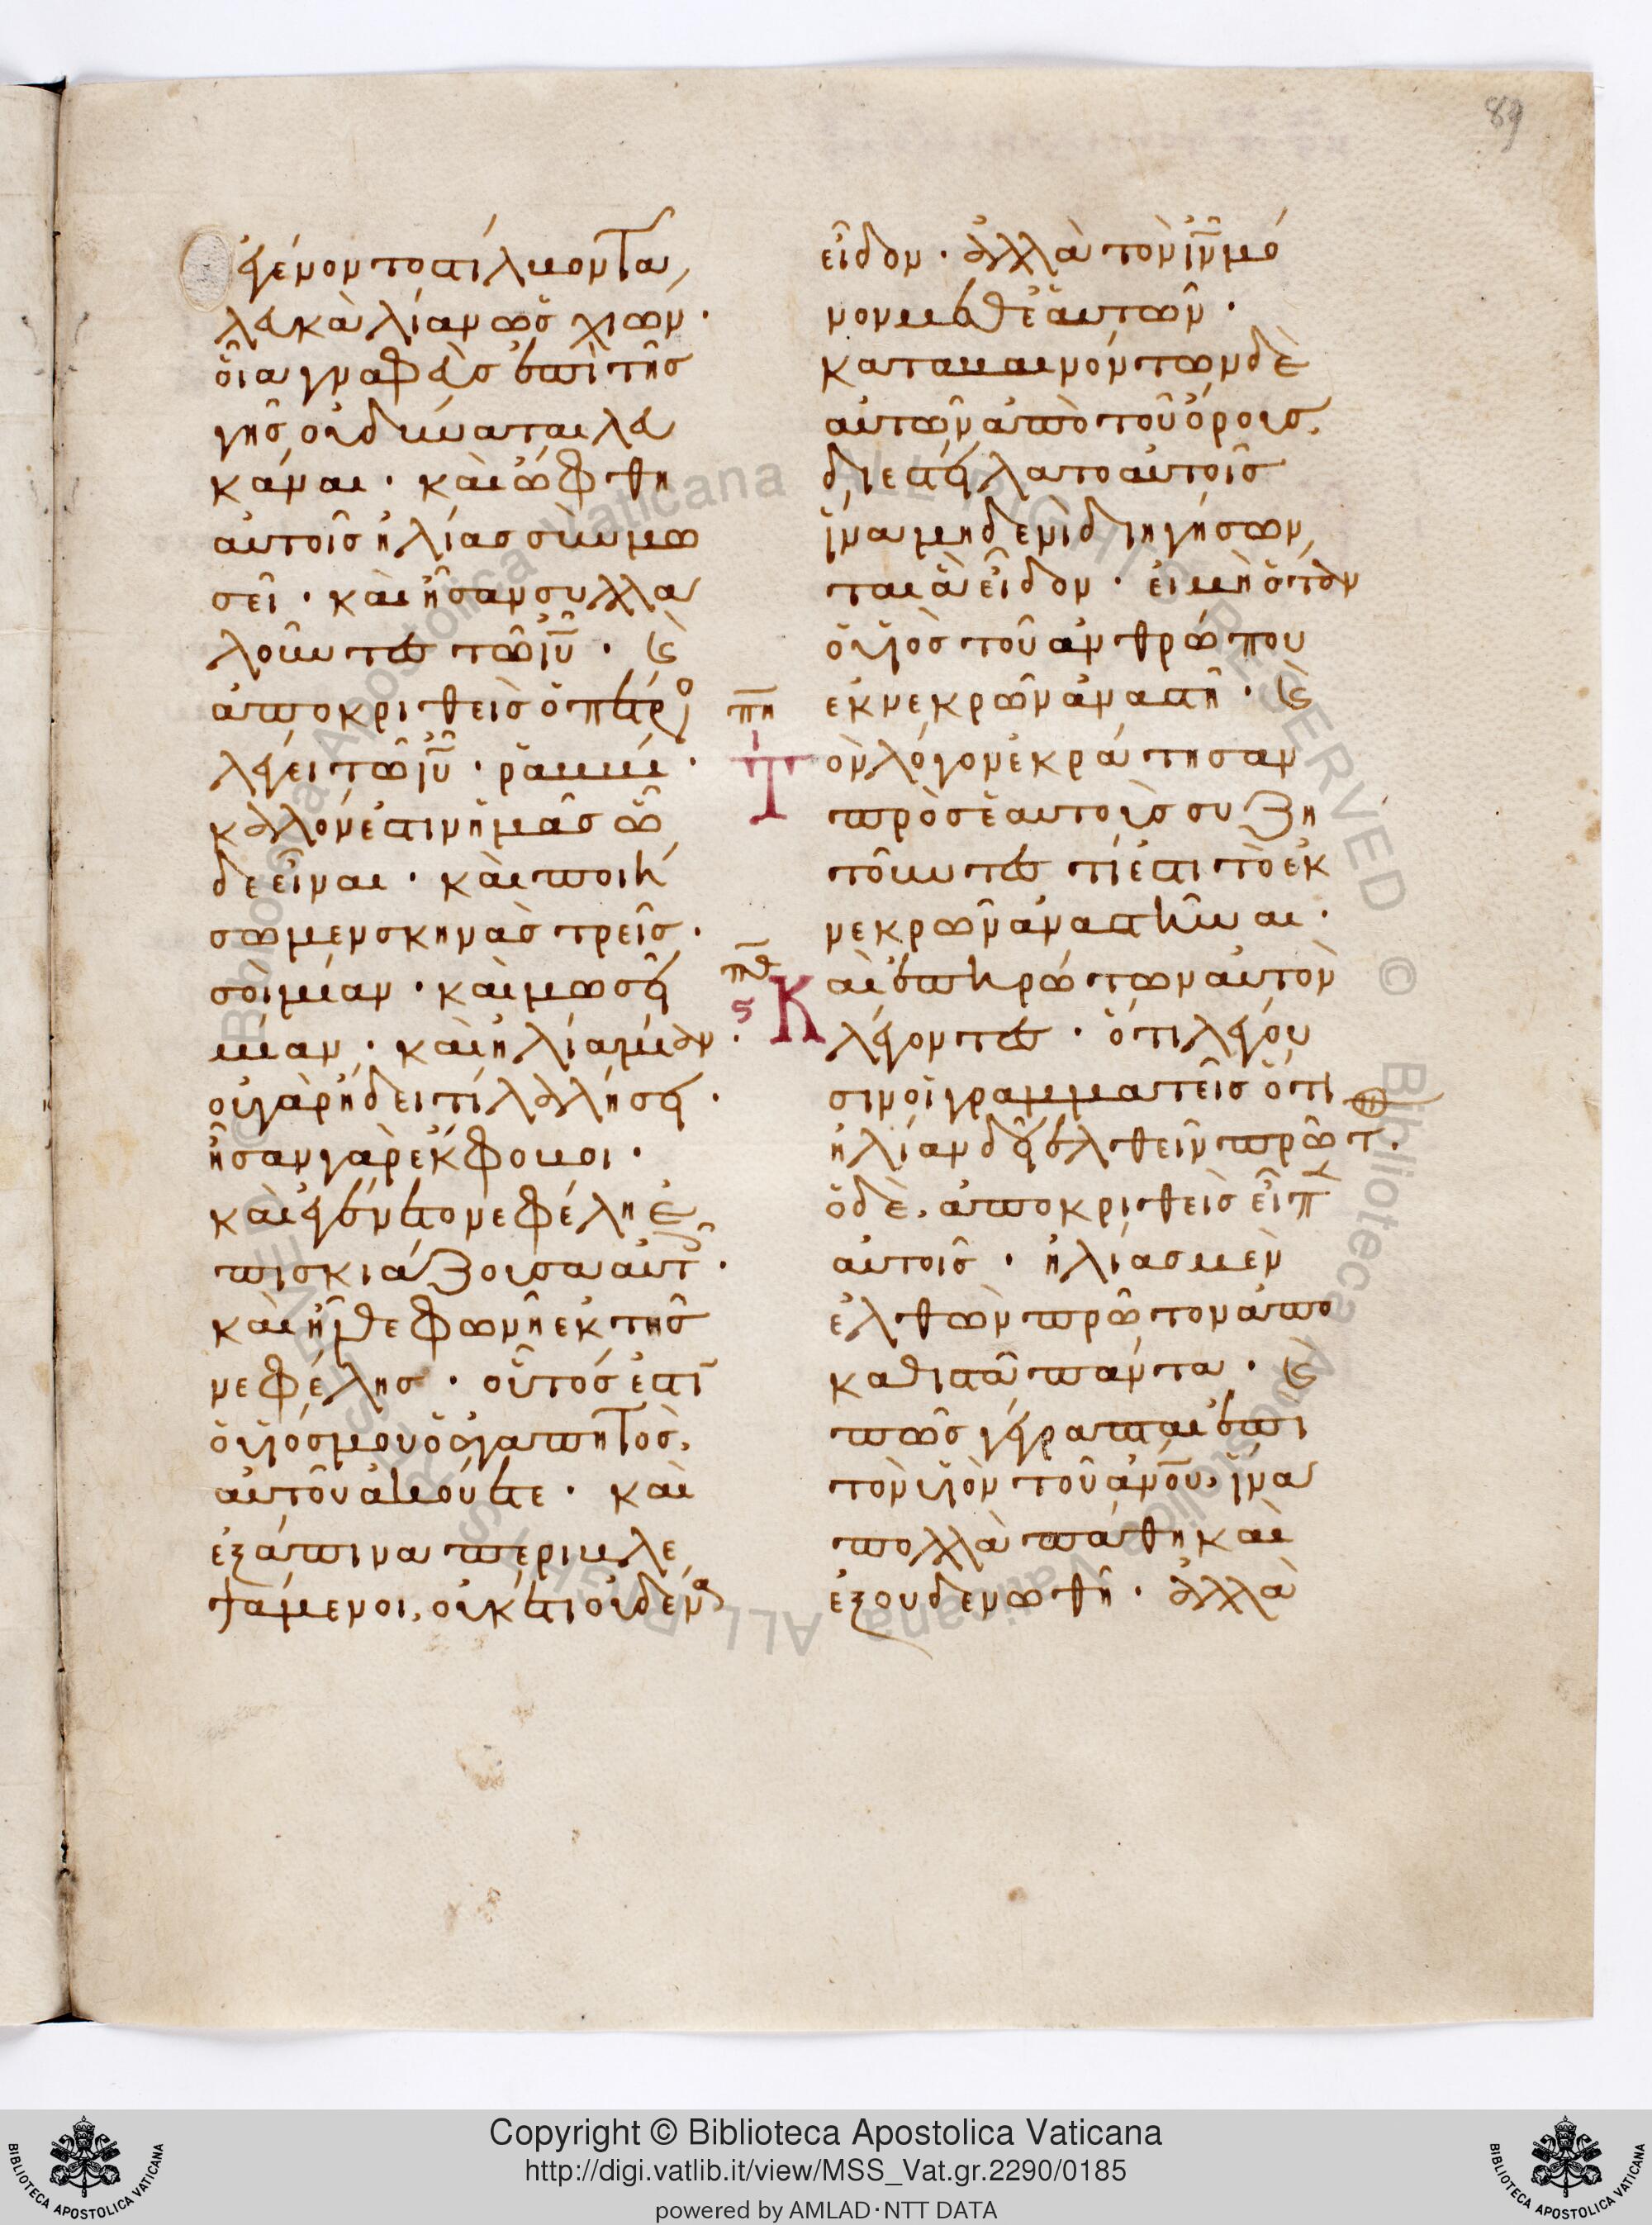 89
ἐγένοντο στίλβοντα
λευκὰ λίαν ὡς χιών·
οἷα γναφεὺς ἐπὶ τῆς
γῆς οὐ δύναται λευ
κάναι· καὶ ὤφθη
αὐτοῖς ἠλίας σὺν μω
σεῖ· καὶ ἦσαν συλλα
λοῦντες τῶ ιυ· καὶ
ἀποκριθεὶς ὁ πέτρο
λέγει τῶ ιυ· ῥαββί·
καλόν ἐστιν ἡμᾶς ὧ
δε εἶναι· καὶ ποιή
σωμεν σκηνὰς τρεῖς·
σοὶ μίαν· καὶ μωσεῖ
μίαν· καὶ ἠλία μίαν·
οὐ γὰρ ἤδει τί λαλήσει·
ἦσαν γὰρ ἔκφοβοι·
καὶ ἐγένετο νεφέλη ἐ
πισκιάζουσα αὐτ·
καὶ ἦλθε φωνὴ ἐκ τῆς
νεφέλης· οὗτός ἐστι
ὁ υἱός μου ὁ ἀγαπητὸς,
αὐτοῦ ἀκούετε· καὶ
ἐξάπινα περιβλε
ψάμενοι, οὐκέτι οὐδένα
εἶδον· ἀλλὰ τὸν ιν μό
νον μεθ' ἑαυτῶν·
καταβαινόντων δὲ
αὐτῶν ἀπὸ τοῦ ὄρους,
διεστείλατο αὐτοῖς
ἵνα μηδενὶ διηγήσων
ται ἃ εἶδον· εἰ μὴ ὅταν
ὁ υἱὸς τοῦ ἀνθρώπου
ἐκ νεκρῶν ἀναστῆ· καὶ
πη
Τὸν λόγον ἐκράτησαν
πρὸς ἑαυτοὺς συζη
τοῦντες τί ἐστι τὸ ἐκ
νεκρῶν ἀναστῆναι·
πθ
ς Καὶ ἐπηρώτων αὐτὸν
λέγοντες· ὅτι λέγου
σιν οἱ γραμματεῖς ὅτι
ἠλίαν δεῖ ἐλθεῖν πρῶτ·
ὁ δὲ, ἀποκριθεὶς εἶπ
αὐτοῖς· ἠλίας μὲν
ἐλθὼν πρῶτον ἀπο
καθιστᾶ πάντα· καὶ
πῶς γέγραπται ἐπὶ
τὸν υἱὸν τοῦ ανου, ἵνα
πολλὰ πάθη καὶ
ἐξουδενωθῆ· ἀλλὰ
Copyright © Biblioteca Apostolica Vaticana
http://digi.vatlib.it/view/MSS_Vat.gr.2290/0185
powered by AMLAD·NTT DATA
BIBLIOTECA APOSTOLICA VATICANA
BIBLIOTECA APOSTOLICA VATICANA